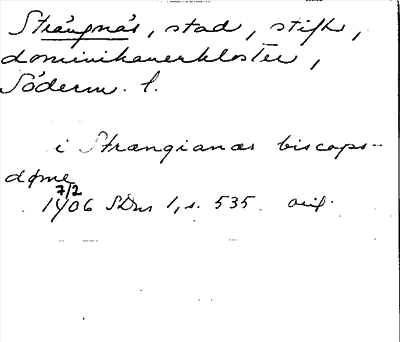 Strängnäs, stad, stift,
dominikanerkloster,
Söderm. l.
i Strængianæs biscops-
døme
7/2
1406 SDns 1, s. 535 orig.